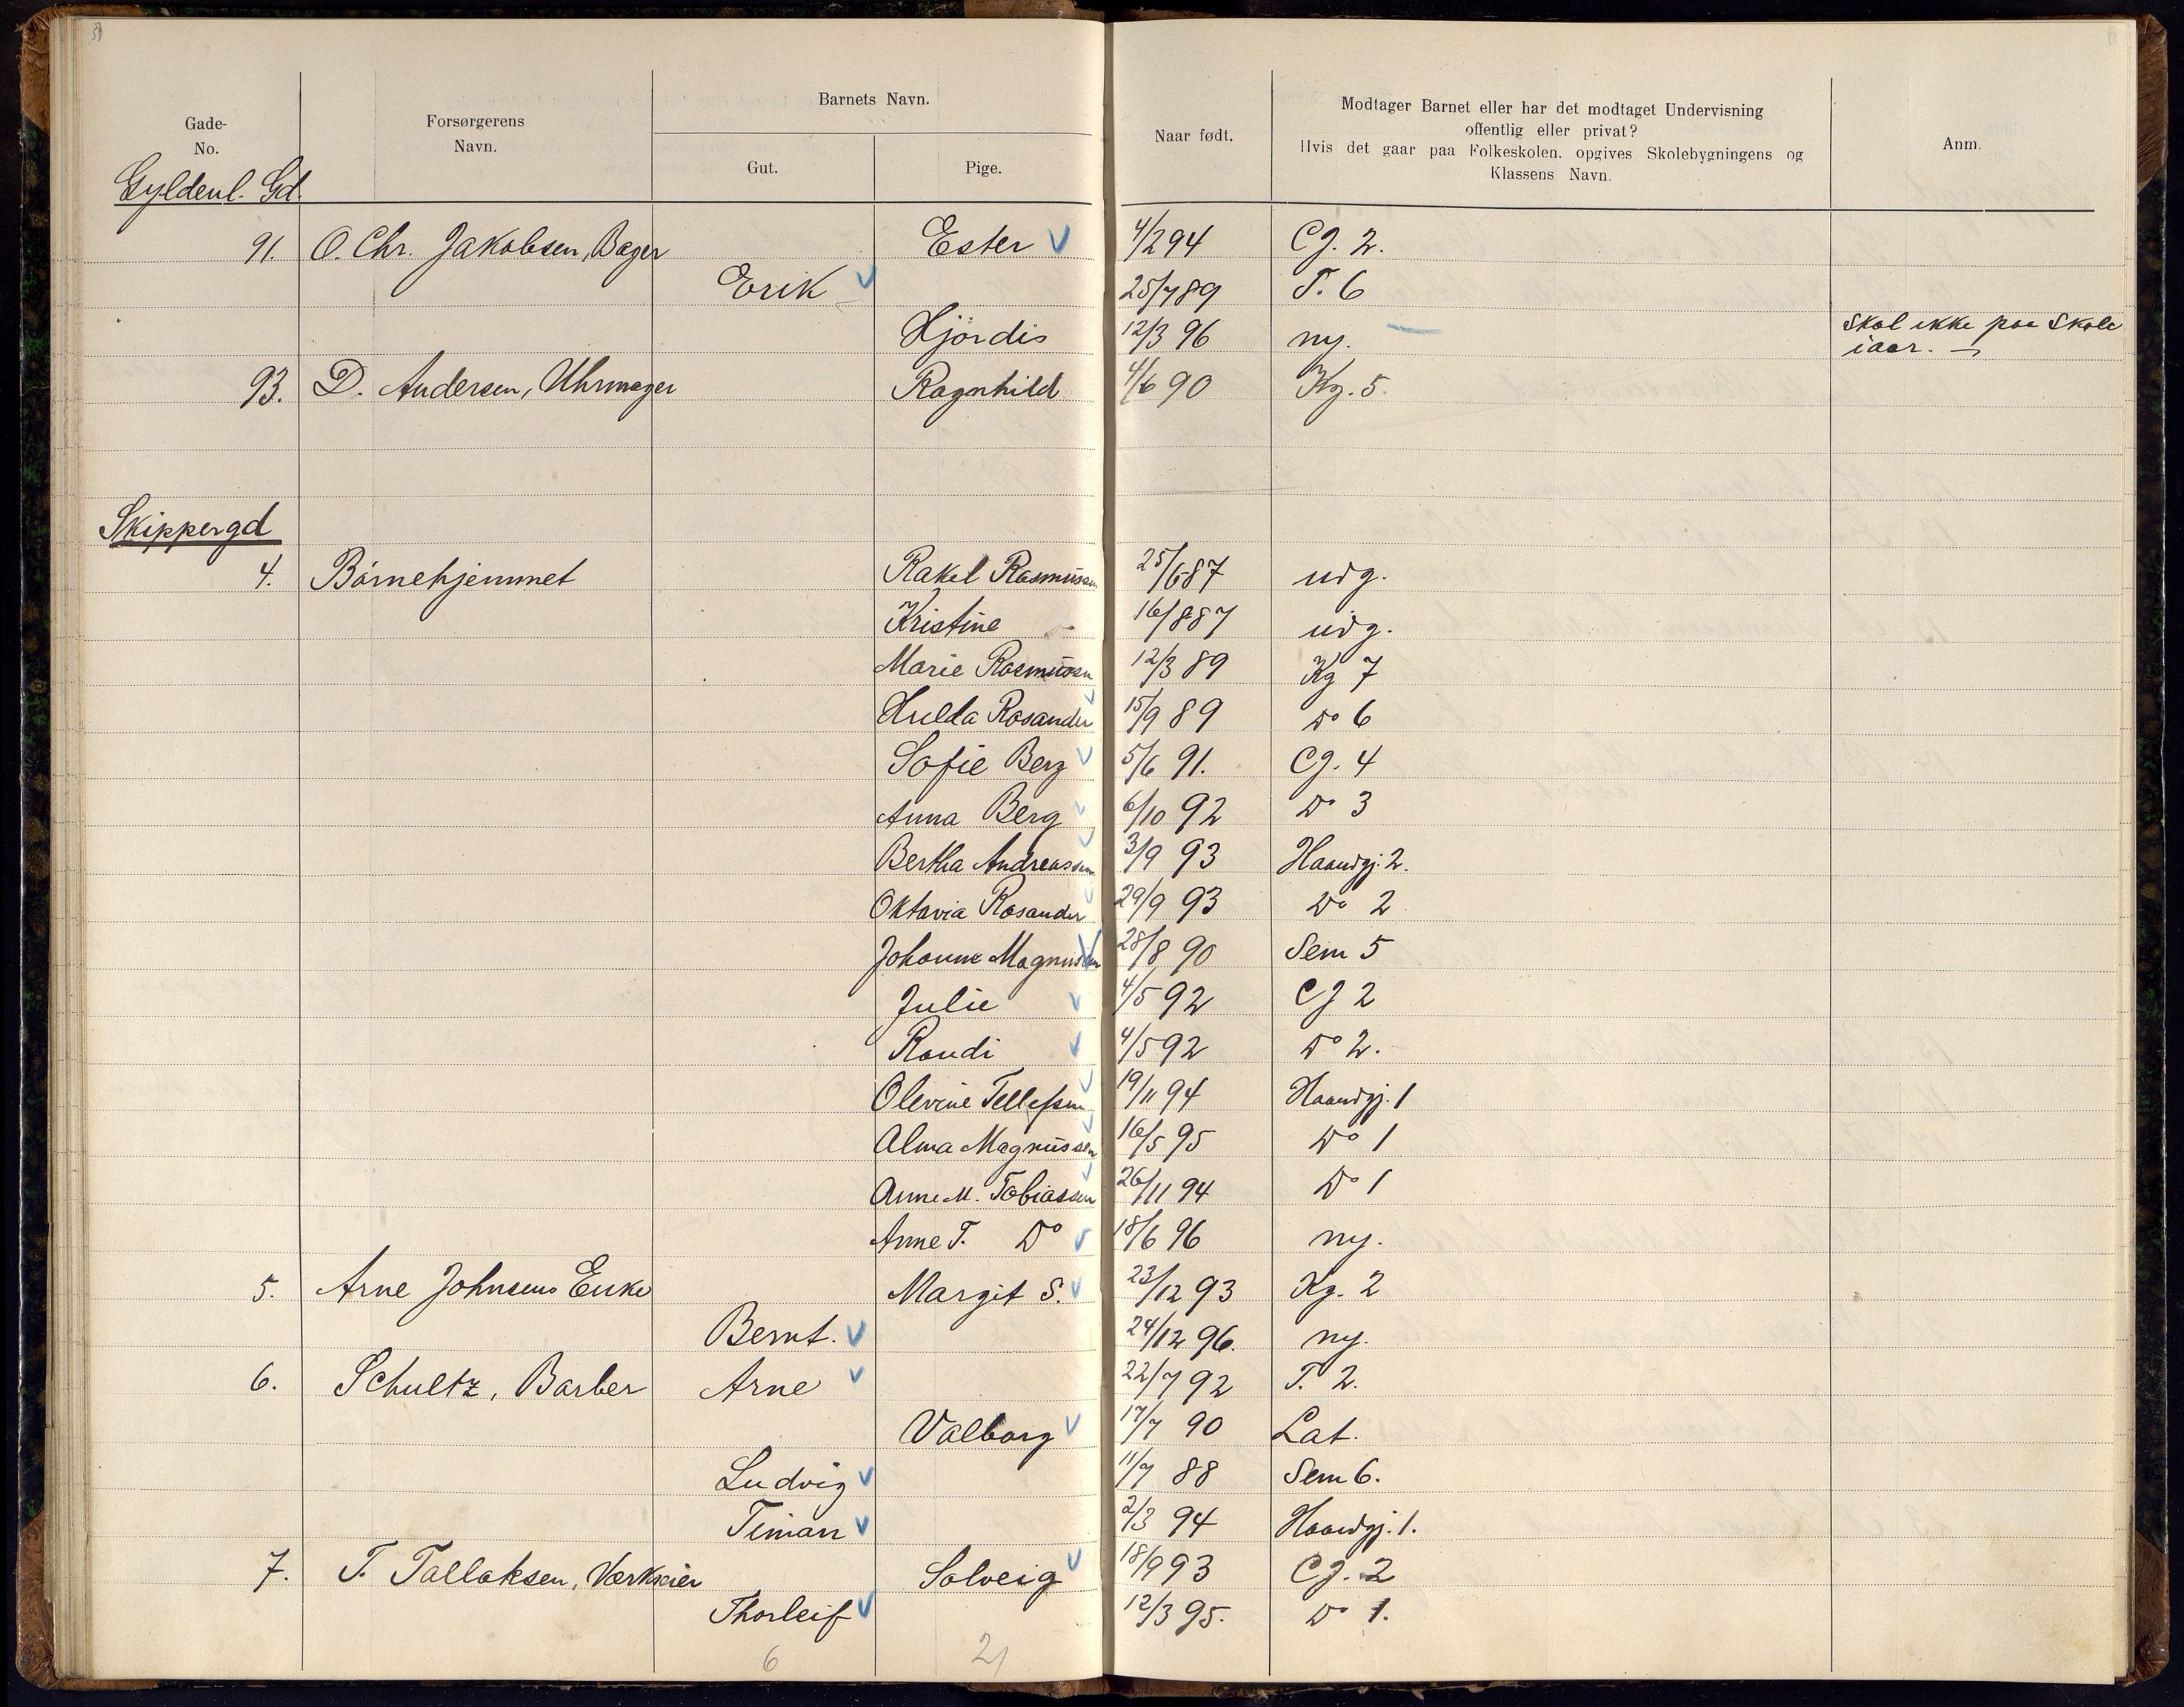 Gade-
No.
Forsørgerens
Navn.
Barnets Navn.
Gut.
Pige.
Naar født.
Modtager Barnet eller har det modtaget Undervisning
offentlig eller privat?
Hvis det gaar paa Folkeskolen, opgives Skolebygningens og
Klassens Navn.
Anm.
Gyldenl. Gd.
91. O. Chr. Jakobsen, Bager Ester 4/2 94 CJ. 2.
Erik 25/7 89 T. 6
Hjördis 12/3 96 ny. Skal ikke paa Skole
iaar.
93. D. Andersen, Uhrmager Ragnhild 4/6 90 Kg. 5.
Skippergd
4. Börnehjemmet Rakel Rasmussen 25/6 87 udg.
Kristine 16/8 87 udg.
Marie Rasmussen 12/3 89 Kg 7
Hulda Rosander 15/9 89 Do 6
Sofie Berg 5/6 91. CJ. 4
Anna Berg 6/10 92 Do 3
Bertha Andreassen 3/9 93 Haandgj. 2.
Oktavia Rosander 29/9 93 Do 2
Johanne Magnussen 28/8 90 Sem 5
Julie 4/5 92 CJ 2
Randi 4/5 92 Do 2.
Olevine Tellefsen 19/11 94 Haandgj. 1
Alma Magnussen 16/5 95 Do 1
Anne M. Tobiassen 26/11 94 Do 1
Anne T. Do 18/6 96 ny.
5. Arne Johnsens Enke Margit S. 23/12 93 Kg. 2
Bernt. 24/12 96. ny.
6. Schultz, Barber Arne 22/7 92 T. 2.
Valborg 17/7 90 Lat.
Ludvig 11/7 88 Sem 6.
Timan 2/3 94 Haandgj. 1.
7. T. Tallaksen, Værkseier Solveig 18/9 93 CJ. 2
Thorleif 12/3 95. Do 1.
6 21